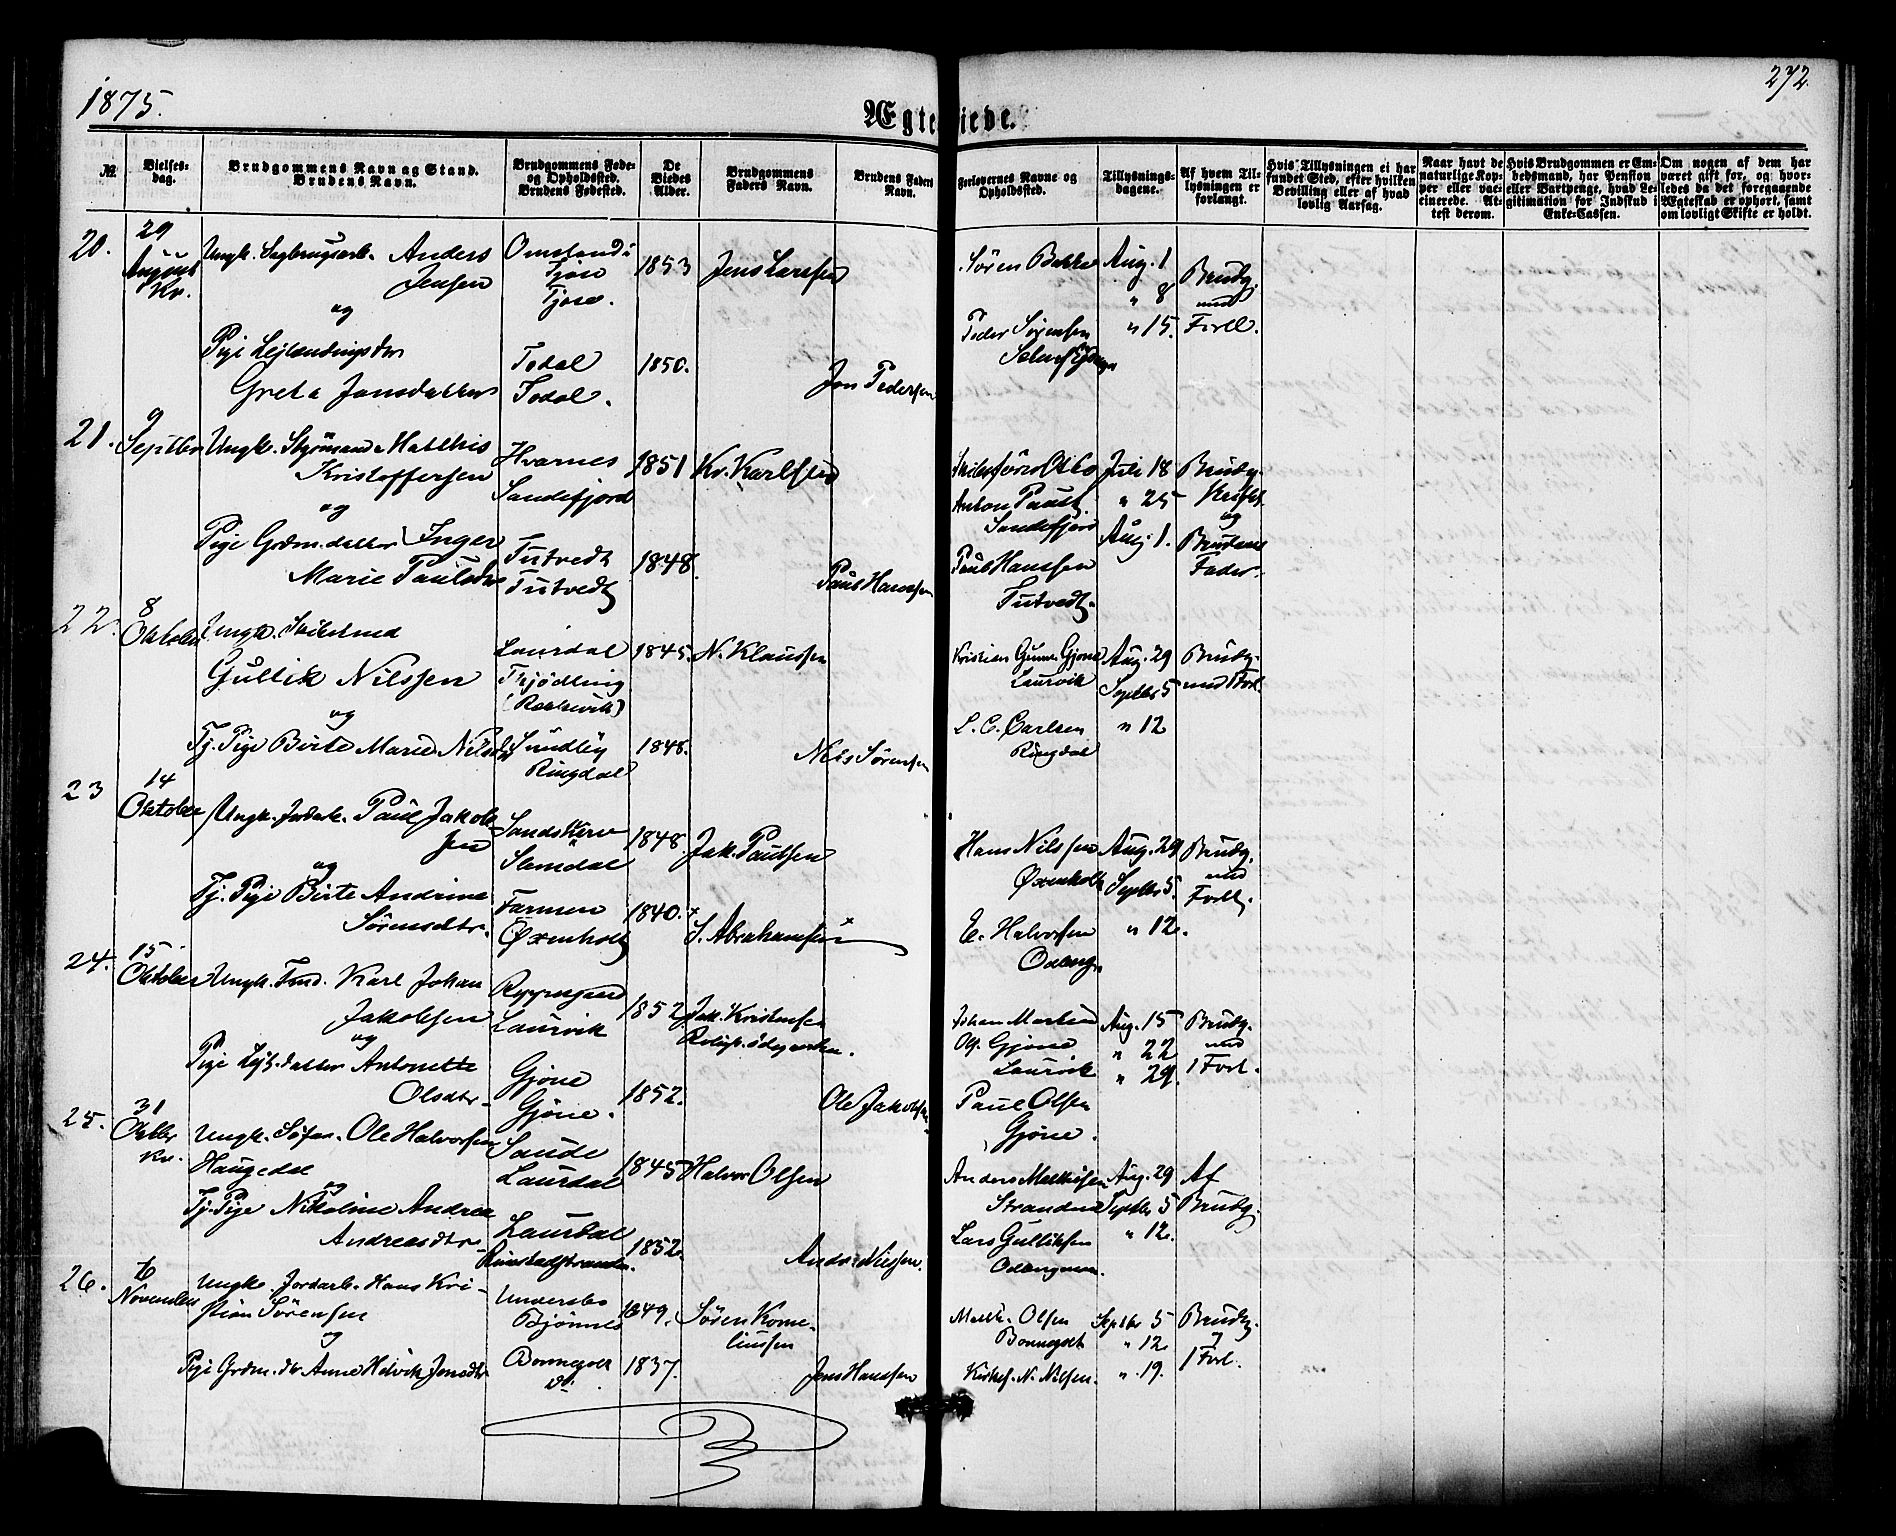 1875.
272.
Ægteviede.
№
Vielses-
dag.
Brudgommens Navn og Stand.
Brudens Navn.
Brudgommens Føde-
og Opholdssted.
Brudens Fødested.
De
Viedes
Alder.
Brudgommens
Faders Navn.
Brudens Faders
Navn.
Forlovernes Navne og
Opholdssted.
Tillysnings-
dagene.
Af hvem Til-
lysningen er
forlangt.
Hvis Tillysningen ei har
fundet Sted, efter hvilken
Bevilling eller af hvad
lovlig Aarsag.
Naar havt de
naturlige Kop-
per eller vac-
cinerede. At-
test derom.
Hvis Brudgommen er Em-
bedsmand, har Pension
eller Vartpenge, hvad Le-
gitimation for Indskud i
Enke-Cassen.
Om nogen af dem har
været gift før, og hvor-
ledes da det foregaaende
Ægteskab er ophørt, samt
om lovligt Skifte er holdt.
20.
29
August
Kv.
Ungk. Sagbrugsarb. Anders
Jensen
og
Pige Lejlændingsdtr
Greta Jonsdatter
Omsland i
Tjøse
Tjose.
Todal
Todal.
1853
1850.
Jens Larssen
Jon Pedersen
Søren Bakke
Peder Sørensen
Aug. 1
" 8
" 15.
Brudg.
med
Forll.
21.
9
Septbr
Ungk. Styrmand Matthis
Kristoffersen
og
Pige Grdm. datter Inger
Marie Paulsdtr
Hvarnes
Sandefjord
Tutvedt
Tutvedt
1851
1848.
Kr. Karlsen
Paul Hanssen
Skibsfører Otto
Anton Paust
Sandefjord
Paul Hanssen
Tutvedt.
Juli 18
" 25
Aug. 1.
Brudg.
Skriftl.
og
Brudens
Fader.
22.
8
Oktober
Ungk. Skibstmd
Gullik Nilssen
og
Tj. Pige Birte Marie Nilsdtr
Laurdal
Thjødling
(Rækkevik)
Sundby
Ringdal
1845.
1848.
N. Klaussen
Nils Sørensen
Kristian Gunn. Gjone
Laurvik
L. C. Carlsen
Ringdal
Aug. 29
Septbr 5
" 12
Brudg.
med Forl.
23
14
Oktober
Ungk. Jordarb. Paul Jakob-
sen
og
Tj. Pige Birte Andrine
Sørensdtr.
Sandskerv
Slemdal
Farmen
Øxenholt
1848.
1840.
Jak. Paulsen
S. Abrahamsen
Hans Nilssen
Øxenholt
E. Halvorsen
Odberg
Aug. 29
Septbr 5.
" 12.
Brudg.
med
Forll.
24.
15
Oktober
Ungk. Tmd. Karl Johan
Jakobsen
og
Pige Lejl. datter Antonette
Olsdtr.
Laurvik
Gjøne
Gjøne.
1852
1852.
Jak. Kristensen
Ole Jakobsen
Johan Martin
Ols. Gjone
Laurvik
Paul Olsen
Gjøne.
Aug. 15
" 22
" 29.
Brudg.
med
1 Forl.
25.
31
Oktbr
Kv.
Ungk. Søfar. Ole Halvorsen
Haugedal
og
Tj. Pige Nikoline Andrea
Andreasdtr.
Saude
Laurdal
Laurdal
1845
1852.
Halvor Olsen
Andr. Nilssen.
Anders Mathisen
Stranden
Lars Gulliksen
Aug. 29
Septbr 5
" 12.
Af
Brudg.
26.
6
November
Ungk. Jordarb. Hans Kri-
stian Sørensen
og
Pige Grdm. dtr Anne Helvik Jensdtr
Undersbo
Bjønnes
Bonnegolt
do.
1849.
1837.
Søren Korne-
liussen
Jens Hanssen
Math. Olsen
Bonnegolt
Kristof. N. Nilsen.
Septbr 5
" 12
" 19.
Brudg.
og
1 Forl.